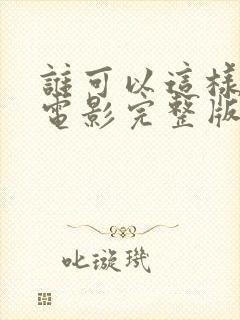 誰可以這樣
電影完整版
叱璇璣